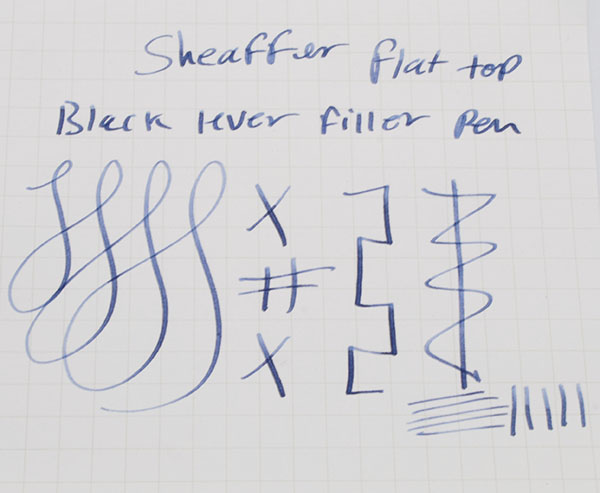 Sheaffer flat top
Black lever filler Pen
X
#
X